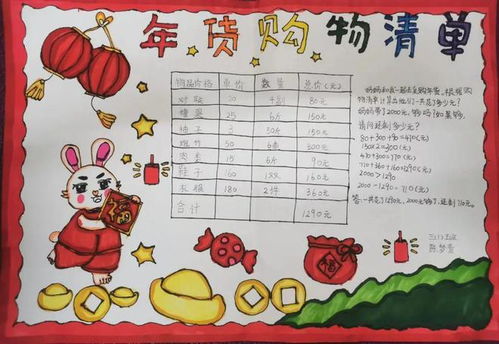 年货购物清单
物品价格 单价 数量 总价(元)
对联 20 4副 80元
糖果 25 6斤 150元
柚子 3 30斤 150元
爆竹 50 6串 300元
肉类 15 6斤 90元
鞋子 160 1双 160元
衣服 180 2件 360元
合计 1290元
妈妈和我一起去采购年货,根据购
物清单计算出他们一共花了多少元?
妈妈带了2000元,够吗?如果够,
请问还剩多少元?
80+300+90=470(元)
150×2=300(元)
470+300=770(元)
770+360+160=1290(元)
2000>1290
2000-1290=710(元)
答:一共花了1290元,2000元够了,还剩710元。
福
福